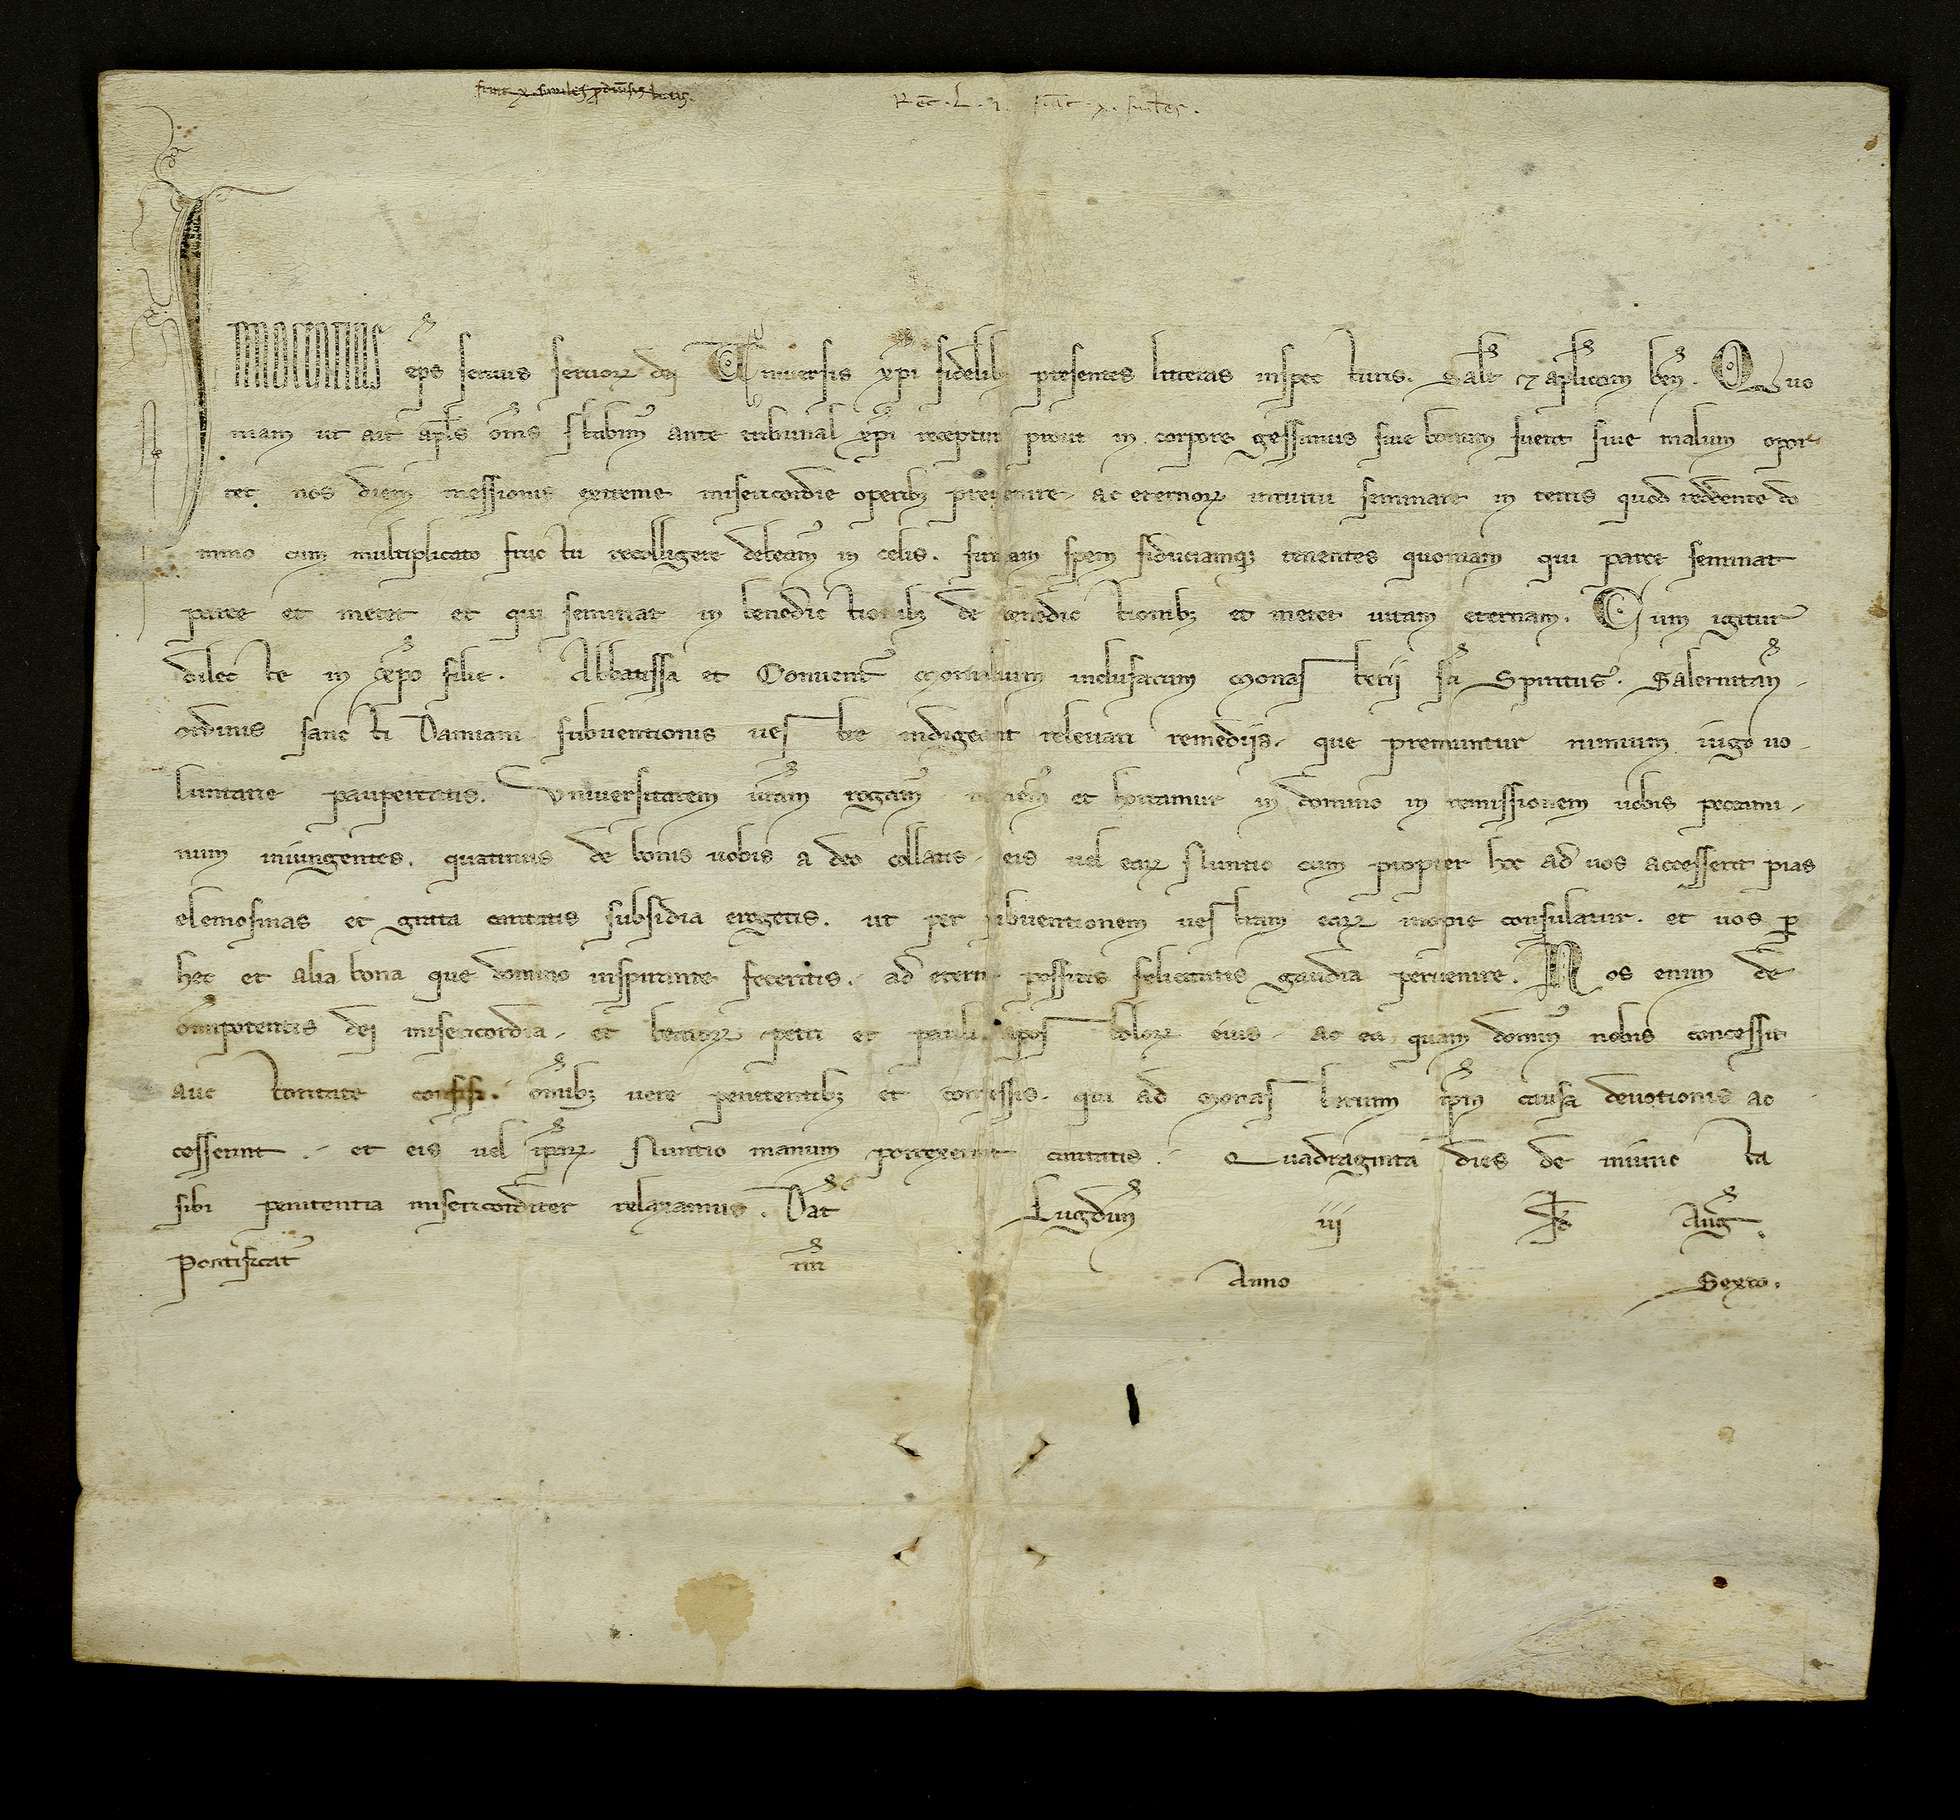 fiant x similes p diūsis locis.
Rec̄. L. fiāt x. similes.
INNOCENTIUS ep̄s seruus seruoꝝ dei Vniuersis xp̄i fidelibꝫ presentes litteras inspecturis. Salt̄ ⁊ aplicam ben̄. Quo
niam ut ait apl̄s om̄s stabim᷒ ante tribunal xp̄i recepturi prout in corpore gessimus siue bonum fuerit siue malum opor
tet nos diem messionis extreme misericordie operibꝫ preuenire ac eternoꝝ intuitu seminare in terris quod reddente do
mino cum multiplicato fructu recolligere debeam᷒ in celis. firmam spem fiduciamqꝫ tenentes quoniam qui parce seminat
parce et metet et qui seminat in benedictionibꝫ de benedictionibꝫ et metet uitam eternam. Cum igitur
dilecte in xp̄o filie. Abbatissa et Conuent᷒ Monialium inclusarum Monasterij sc̄i Spiritus. Salernitan̄.
ordinis sancti Damiani subuentionis uestre indigeant releuari remedijs. que premuntur nimium iugo uo
luntarie paupertatis. Vniuersitatem ur̄am rogam᷒ monem᷒ et hortamur in domino in remissionem uobis peccami
num iniungentes. quatinus de bonis uobis a deo collatis eis uel eaꝝ Nuntio cum propter hoc ad uos accesserit pias
elemosinas et grata caritatis subsidia erogetis. ut per subuentionem uestram eaꝝ inopie consulatur. et uos ꝑ
hec et alia bona que domino inspirante feceritis. ad eterne possitis felicitatis gaudia peruenire. Nos enim de
om̄ipotentis dei misericordia. et beatoꝝ petri et pauli apostoloꝝ eius. ac ea quam domin᷒ nobis concessit
auctoritate confisi. om̄ibꝫ uere penitentibꝫ et confessis. qui ad Monasterium ip̄m causa deuotionis ac
cesserint. et eis uel ip̄aꝝ Nuntio manum porrexerint caritatis. Quadraginta dies de iniuncta
sibi penitentia misericorditer relaxamus. Dat̄ Lugdun̄ iij kl̄ Auḡ.
Pontificat᷒ nr̄i Anno Sexto.